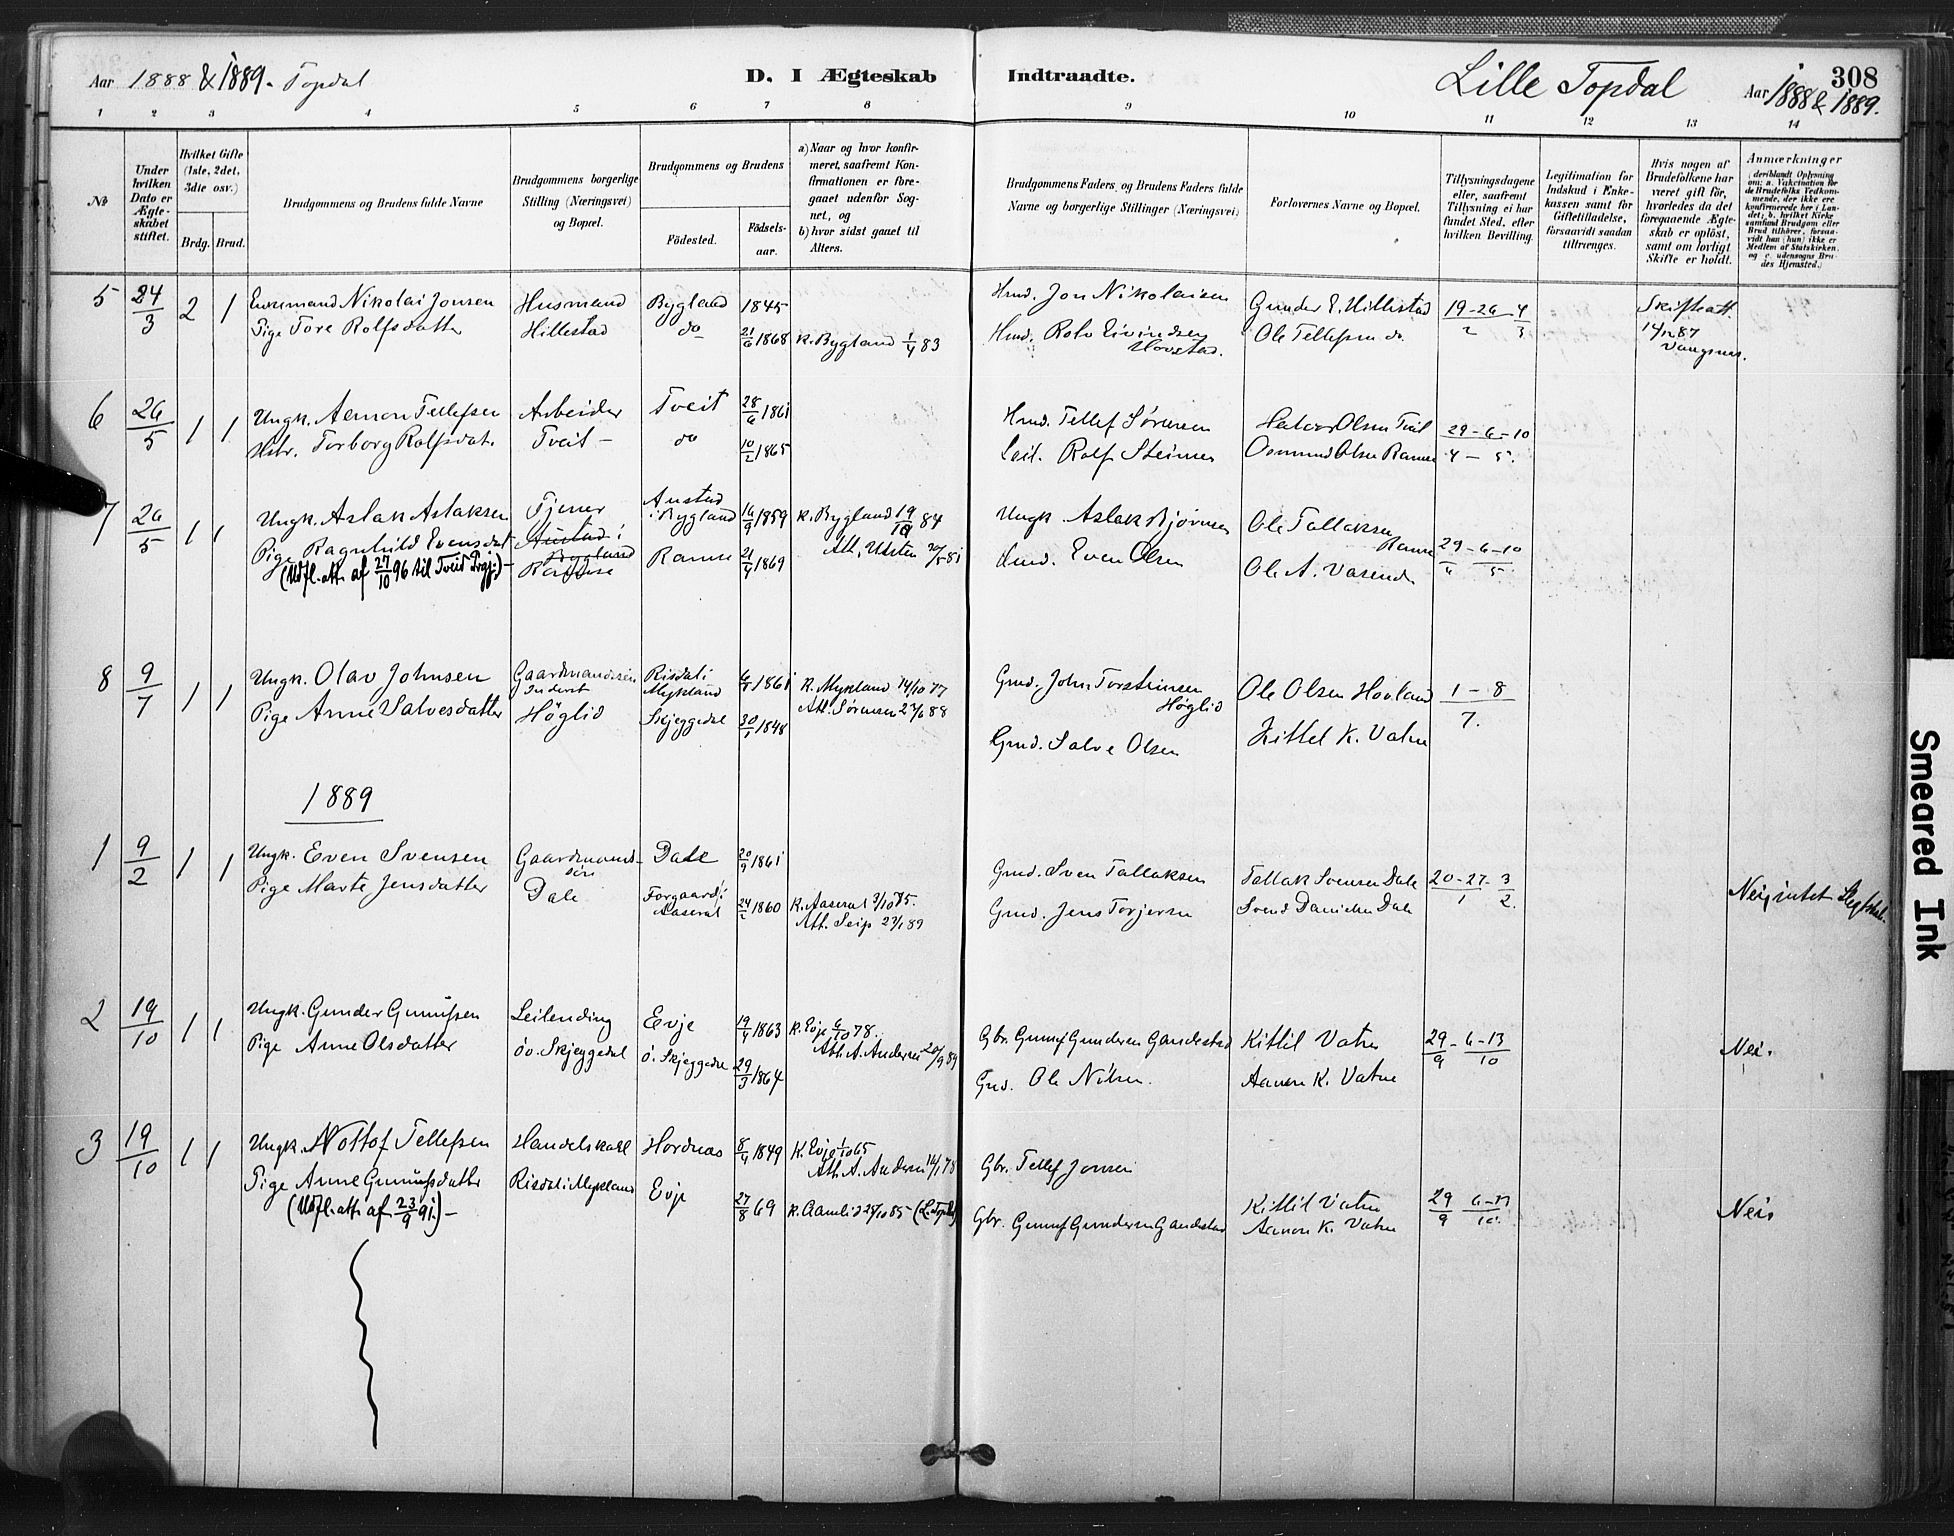 Aar 1888 & 1889. Topdal
D. I Ægteskab Indtraadte.
Lille Topdal
308
Aar 1888 & 1889.
1 2 3 4 5 6 7 8 9 10 11 12 13 14
No
Under hvilken Dato er Ægteskabet stiftet.
Hvilket Gifte (1ste, 2det, 3die osv.)
Brdg. Brud.
Brudgommens og Brudens fulde Navne
Brudgommens borgerlige Stilling (Næringsvei) og Bopæl.
Brudgommens og Brudens
Födested.
Födselsaar.
a) Naar og hvor konfirmeret, saafremt Konfirmationen er foregaaet udenfor Sognet, og
b) hvor sidst gaaet til Alters.
Brudgommens Faders og Brudens Faders fulde Navne og borgerlige Stillinger (Næringsvei)
Forlovernes Navne og Bopæl.
Tillysningsdagene eller, saafremt Tillysning ei har fundet Sted, efter hvilken Bevilling.
Legitimation for Indskud i Enkekassen samt for Giftetilladelse, forsaavidt saadan tiltrænges.
Hvis nogen af Brudefolkene har været gift för, hvorledes da det foregaaende Ægteskab er oplöst, samt om lovligt Skifte er holdt.
Anmærkninger (deriblandt Oplysning om: a. Vakcination for de Brudefolks Vedkommende, der ikke ere konfirmerede her i Landet; b. hvilket Kirkesamfund Brudgom eller Brud tilhörer, forsaavidt han (hun) ikke er Medlem af Statskirken, og c. udensogns Brudes Hjemsted.)
5 24/3 2 1 Enkemand Nikolai Jonsen Husmand Bygland 1845 Hmd. Jon Nikolaisen Gunder E. Hillestad 19-26-4 Skifteatt.
Pige Tore Rolfsdatter Hillestad do 21/6 1868 K. Bygland 1/4 83 Hmd. Rolv Eivindsen Hovstad. Ole Tellefsen do. 2 3 14/12 87
6 26/5 1 1 Ungk. Aanon Tellefsen Arbeider Tveit 28/6 1861 Hmd. Tellef Sørensen Halvor Olsen Tveit 29-6-10
Torborg Rolfsdat. Tveit - do 10/2 1865 Leil. Rolf Steiner Osmund Olsen Ramse 4 - 5.
7 26/5 1 1 Ungk. Aslak Aslaksen Tjener Austad i Bygland 16/9 1859 K. Bygland 19/10 84 Ungk Aslak Bjørnsen Ole Tallaksen Ramse 29-6-10
Pige Ragnhild Evensdat Austad i Bygland Ramse Ramse 21/4 1869 Att. Utsten 20/5 81 Hmd. Even Olsen Ole A. Vasend 4 5
(Udfl.att. af 27/10 96 til Tveit Prgj.)-
8 9/7 1 1 Ungk. Olav Johnsen Gaardmandssøn Risdal i Mykland 1861 K. Mykland 14/10 77 Grmd. John Torsteinsen Høglid Ole Olsen Hovland 1-8
Pige Anne Salvesdatter Høglid Skjeggedal 30/1 1848 Att. Sørensen 27/6 88 Grmd. Salve Olsen Kittel K. Vatne 7.
1889
1 9/2 1 1 Ungk. Even Svensen Gaardmandssøn Dale 20/9 1861 Grmd. Sven Tallaksen Tallak Svensen Dale 20-27-3
Pige Marte Jensdatter Dale Forgaard i Aaseral 24/2 1860 K. Aaseral 3/10 75. Att. Seip 27/1 89 Grmd. Jens Torjersen Svend Danielsen Dale 1 2. Nei, intet Slegtskab.
2 19/10 1 1 Ungk. Gunder Gunufsen Leilending Evje 19/4 1863 K. Evje 6/10 78. Gbr. Gunuf Gundersen Gandestad Kittil Vatne 29-6-13 Nei.
Pige Anne Olsdatter öv. Skjeggedal ö. Skjeggedal 29/3 1864 Att. A. Andersen 20/9 89 Grd. Ole Nilsen. Aanon K. Vatne 9 10
3 19/10 1 1 Ungk. Nottof Tellefsen Handelskarl Hordnæs 8/4 1849 K. Evje 1/10 65 Att. A. Andersen 16/1 78 Gbr. Tellef Jonsen
Pige Anne Gunufsdatter Risdal i Mykland Evje 27/8 69 K. Aamli 27/10 85 (L. Topdal) Gbr. Gunuf Gundersen Gandestad Kittil Vatne 29 6-13 Nei
(Udfl.att. af 23/9 91.)- Aanon K. Vatne 9 10.
Smeared Ink